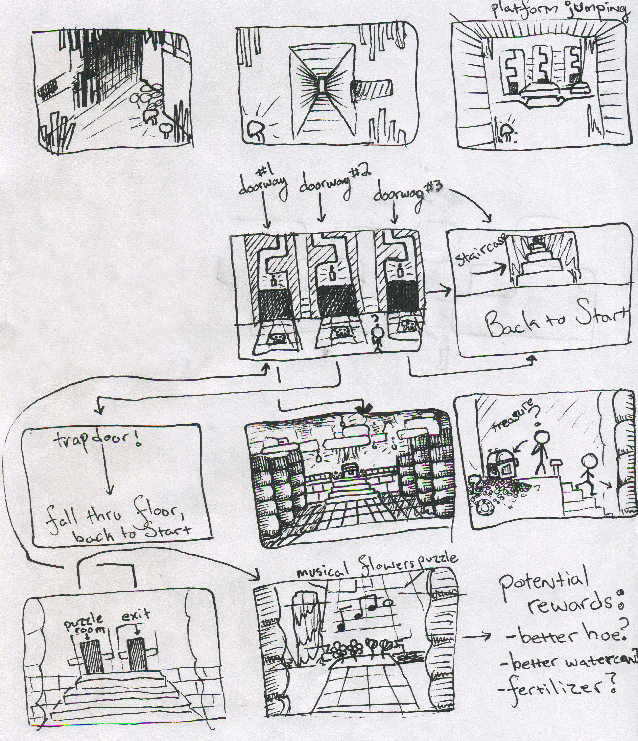 platform jumping
#1
doorway
doorway #2
doorway #3
staircase
Back to Start
?
trap door!
fall thru floor,
back to Start
treasure?
musical flowers puzzle
puzzle
room
exit
Potential
rewards:
-better hoe?
-better watercan?
-fertilizer?